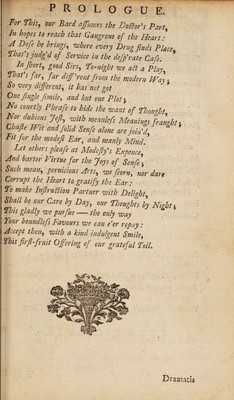 PROLOGUE.
For This, our Bard assumes the Doctor's Part,
In hopes to reach that Gangrene of the Heart:
A Dose he brings, where every Drug finds Place,
That's judg'd of Service in the desp'rate Case.
In short, good Sirs, To-night we act a Play,
That's far, far diff'rent from the modern Way;
So very different, it has not got
One single simile, and but one Plot;
No courtly Phrase to hide the want of Thought,
Nor dubious Jest, with meanless Meanings fraught;
Chaste Wit and solid Sense alone are join'd,
Fit for the modest Ear, and manly Mind.
Let others please at Modesty's Expence,
And barter Virtue for the Joys of Sense;
Such mean, pernicious Arts, we scorn, nor dare
Corrupt the Heart to gratify the Ear:
To make Instruction Partner with Delight,
Shall be our Care by Day, our Thoughts by Night;
This gladly we pursue — the only way
Your boundless Favours we can e'er repay:
Accept then, with a kind indulgent Smile,
This first-fruit Offering of our grateful Toil.
Dramatis